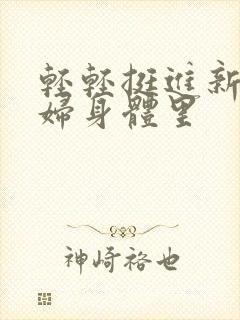 輕輕挺進新
婦身體里
神崎裕也